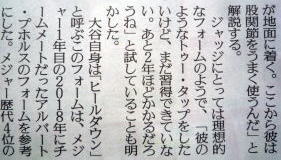 が地面に着く。ここから彼は
股関節をうまく使うんだ」と
解説する。
ジャッジにとっては理想的
なフォームのようで、「彼の
ようなトゥ・タップをした
いけど、まだ習得できていな
い。あと2年ほどかかるだろ
うね」と試していることも明
かした。
大谷自身は「ヒールダウン」
と呼ぶこのフォームは、メジ
ャー1年目の2018年にチ
ームメートだったアルバート
・プホルスのフォームを参考
にした。メジャー歴代4位の